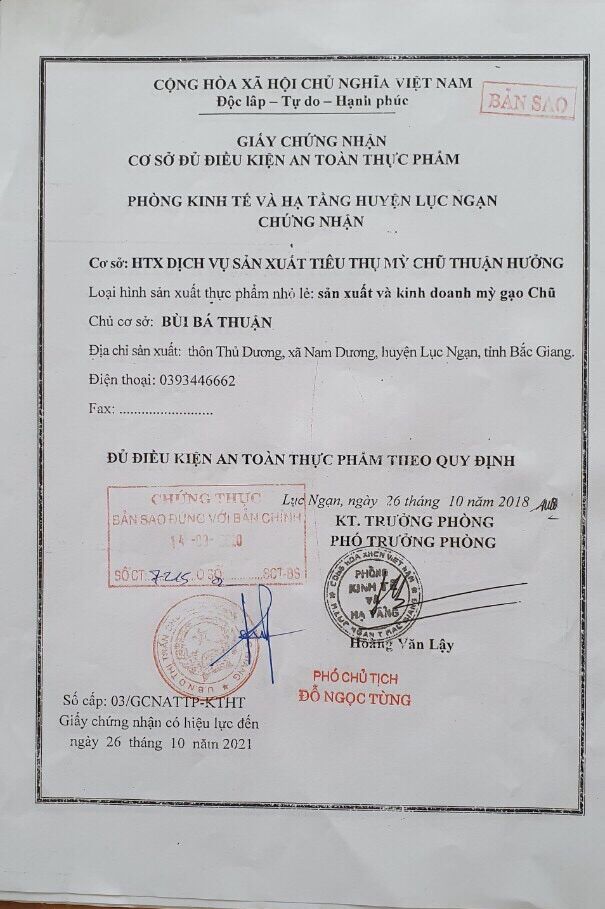 CỘNG HÒA XÃ HỘI CHỦ NGHĨA VIỆT NAM
Độc lập – Tự do – Hạnh phúc
BẢN SAO
GIẤY CHỨNG NHẬN
CƠ SỞ ĐỦ ĐIỀU KIỆN AN TOÀN THỰC PHẨM
PHÒNG KINH TẾ VÀ HẠ TẦNG HUYỆN LỤC NGẠN
CHỨNG NHẬN
Cơ sở: HTX DỊCH VỤ SẢN XUẤT TIÊU THỤ MỲ CHŨ THUẬN HƯỞNG
Loại hình sản xuất thực phẩm nhỏ lẻ: sản xuất và kinh doanh mỳ gạo Chũ
Chủ cơ sở: BÙI BÁ THUẬN
Địa chỉ sản xuất: thôn Thủ Dương, xã Nam Dương, huyện Lục Ngạn, tỉnh Bắc Giang.
Điện thoại: 0393446662
Fax: .........................
ĐỦ ĐIỀU KIỆN AN TOÀN THỰC PHẨM THEO QUY ĐỊNH
Lục Ngạn, ngày 26 tháng 10 năm 2018
KT. TRƯỞNG PHÒNG
PHÓ TRƯỞNG PHÒNG
CHỨNG THỰC
BẢN SAO ĐÚNG VỚI BẢN CHÍNH
SỐ CT: SCT-BS
PHÒNG
KINH TẾ
VÀ
HẠ TẦNG
Hoàng Văn Lậy
PHÓ CHỦ TỊCH
ĐỖ NGỌC TÙNG
Số cấp: 03/GCNATTP-KTHT
Giấy chứng nhận có hiệu lực đến
ngày 26 tháng 10 năm 2021